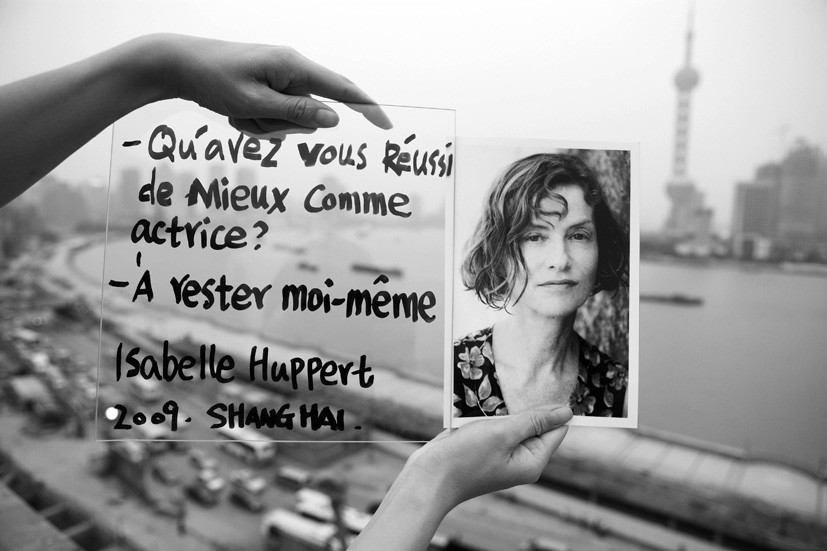 - Qu'avez vous Réussi
de Mieux comme
actrice?
- À rester moi-même
Isabelle Huppert
2009. SHANGHAI.